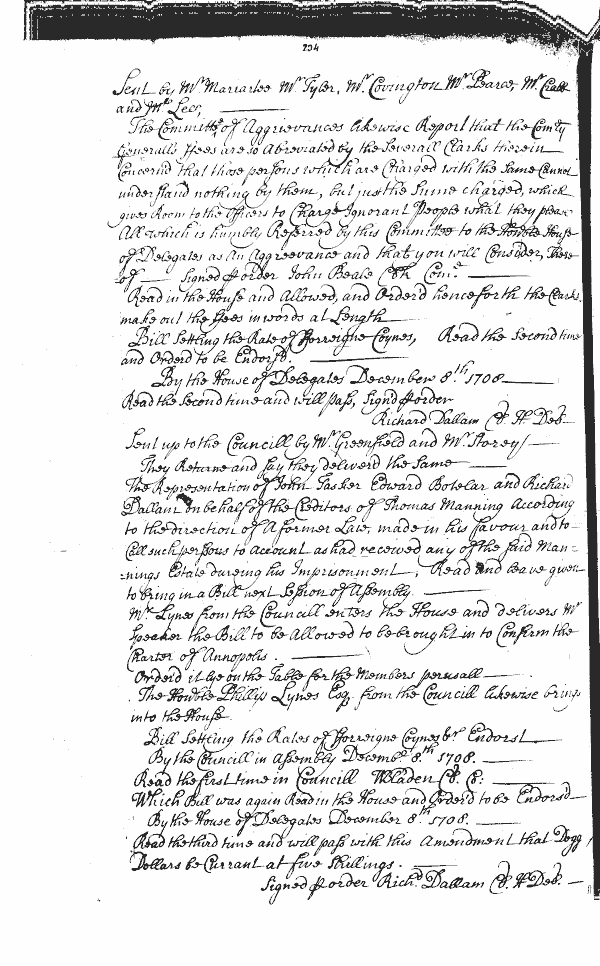 234
Sent by Mr. Mariartee Mr. Tyler, Mr. Covington Mr. Pearce, Mr. Crabb
and Mr. Lees,
The Committee of Aggrievances likewise Report that the County
Generalls ffees are so Abreviated by the Severall Clarks therein
Concernd that those persons which are Charged with the Same Cannot
understand nothing by them, but just the Summe charged, which
gives Room to the Officers to Charge Ignorant People what they please
All which is humbly Referred by this Committee to the Honoble House
of Delegates as An Aggreevance and that you will Consider, there
of Signed p order John Beale Clk Com.
Read in the House and Allowed, and Order'd henceforth the Clarks
make out the ffees in words at Length
Bill Setting the Rate of fforreigne Coynes, Read the Second time
and Orderd to be Endorsd.
By the House of Delegates December 8.th 1708
Read the Second time and will pass, Signd p order
Richard Dallam Cl. H. Del.
Sent up to the Councill by Mr. Greenfield and Mr. Storey/
They Returne and Say they deliverd the Same
The Representation of John Tasker Edward Botelar and Richard
Dallam on behalf of the Creditors of Thomas Manning According
to the direction of A former Law, made in his favour and to
Call such persons to Account as had received any of the said Man=
=nings Estate dureing his Imprisonment, Read and leave given
to bring in a Bill next Session of Assembly.
Mr. Lynes from the Councill enters the House and delivers Mr.
Speaker the Bill to be Allowed to be brought in to Confirm the
Charter of Annopolis.
Orderd it lye on the Table for the Members perusall
The Honoble Phillip Lynes Esq. from the Councill likewise brings
into the House
Bill Settling the Rates of fforreigne Coynes &c Endorst
By the Councill in Assembly Decemb. 8.th 1708.
Read the first time in Councill W Bladen Cl. C:
Which Bill was again Read in the House and Order'd to be Endors'd
By the House of Delegates December 8.th 1708.
Read the third time and will pass with this Amendment that Dogg
Dollars be Currant at five Shillings.
Signed p order Richd. Dallam Cl. H. Del.